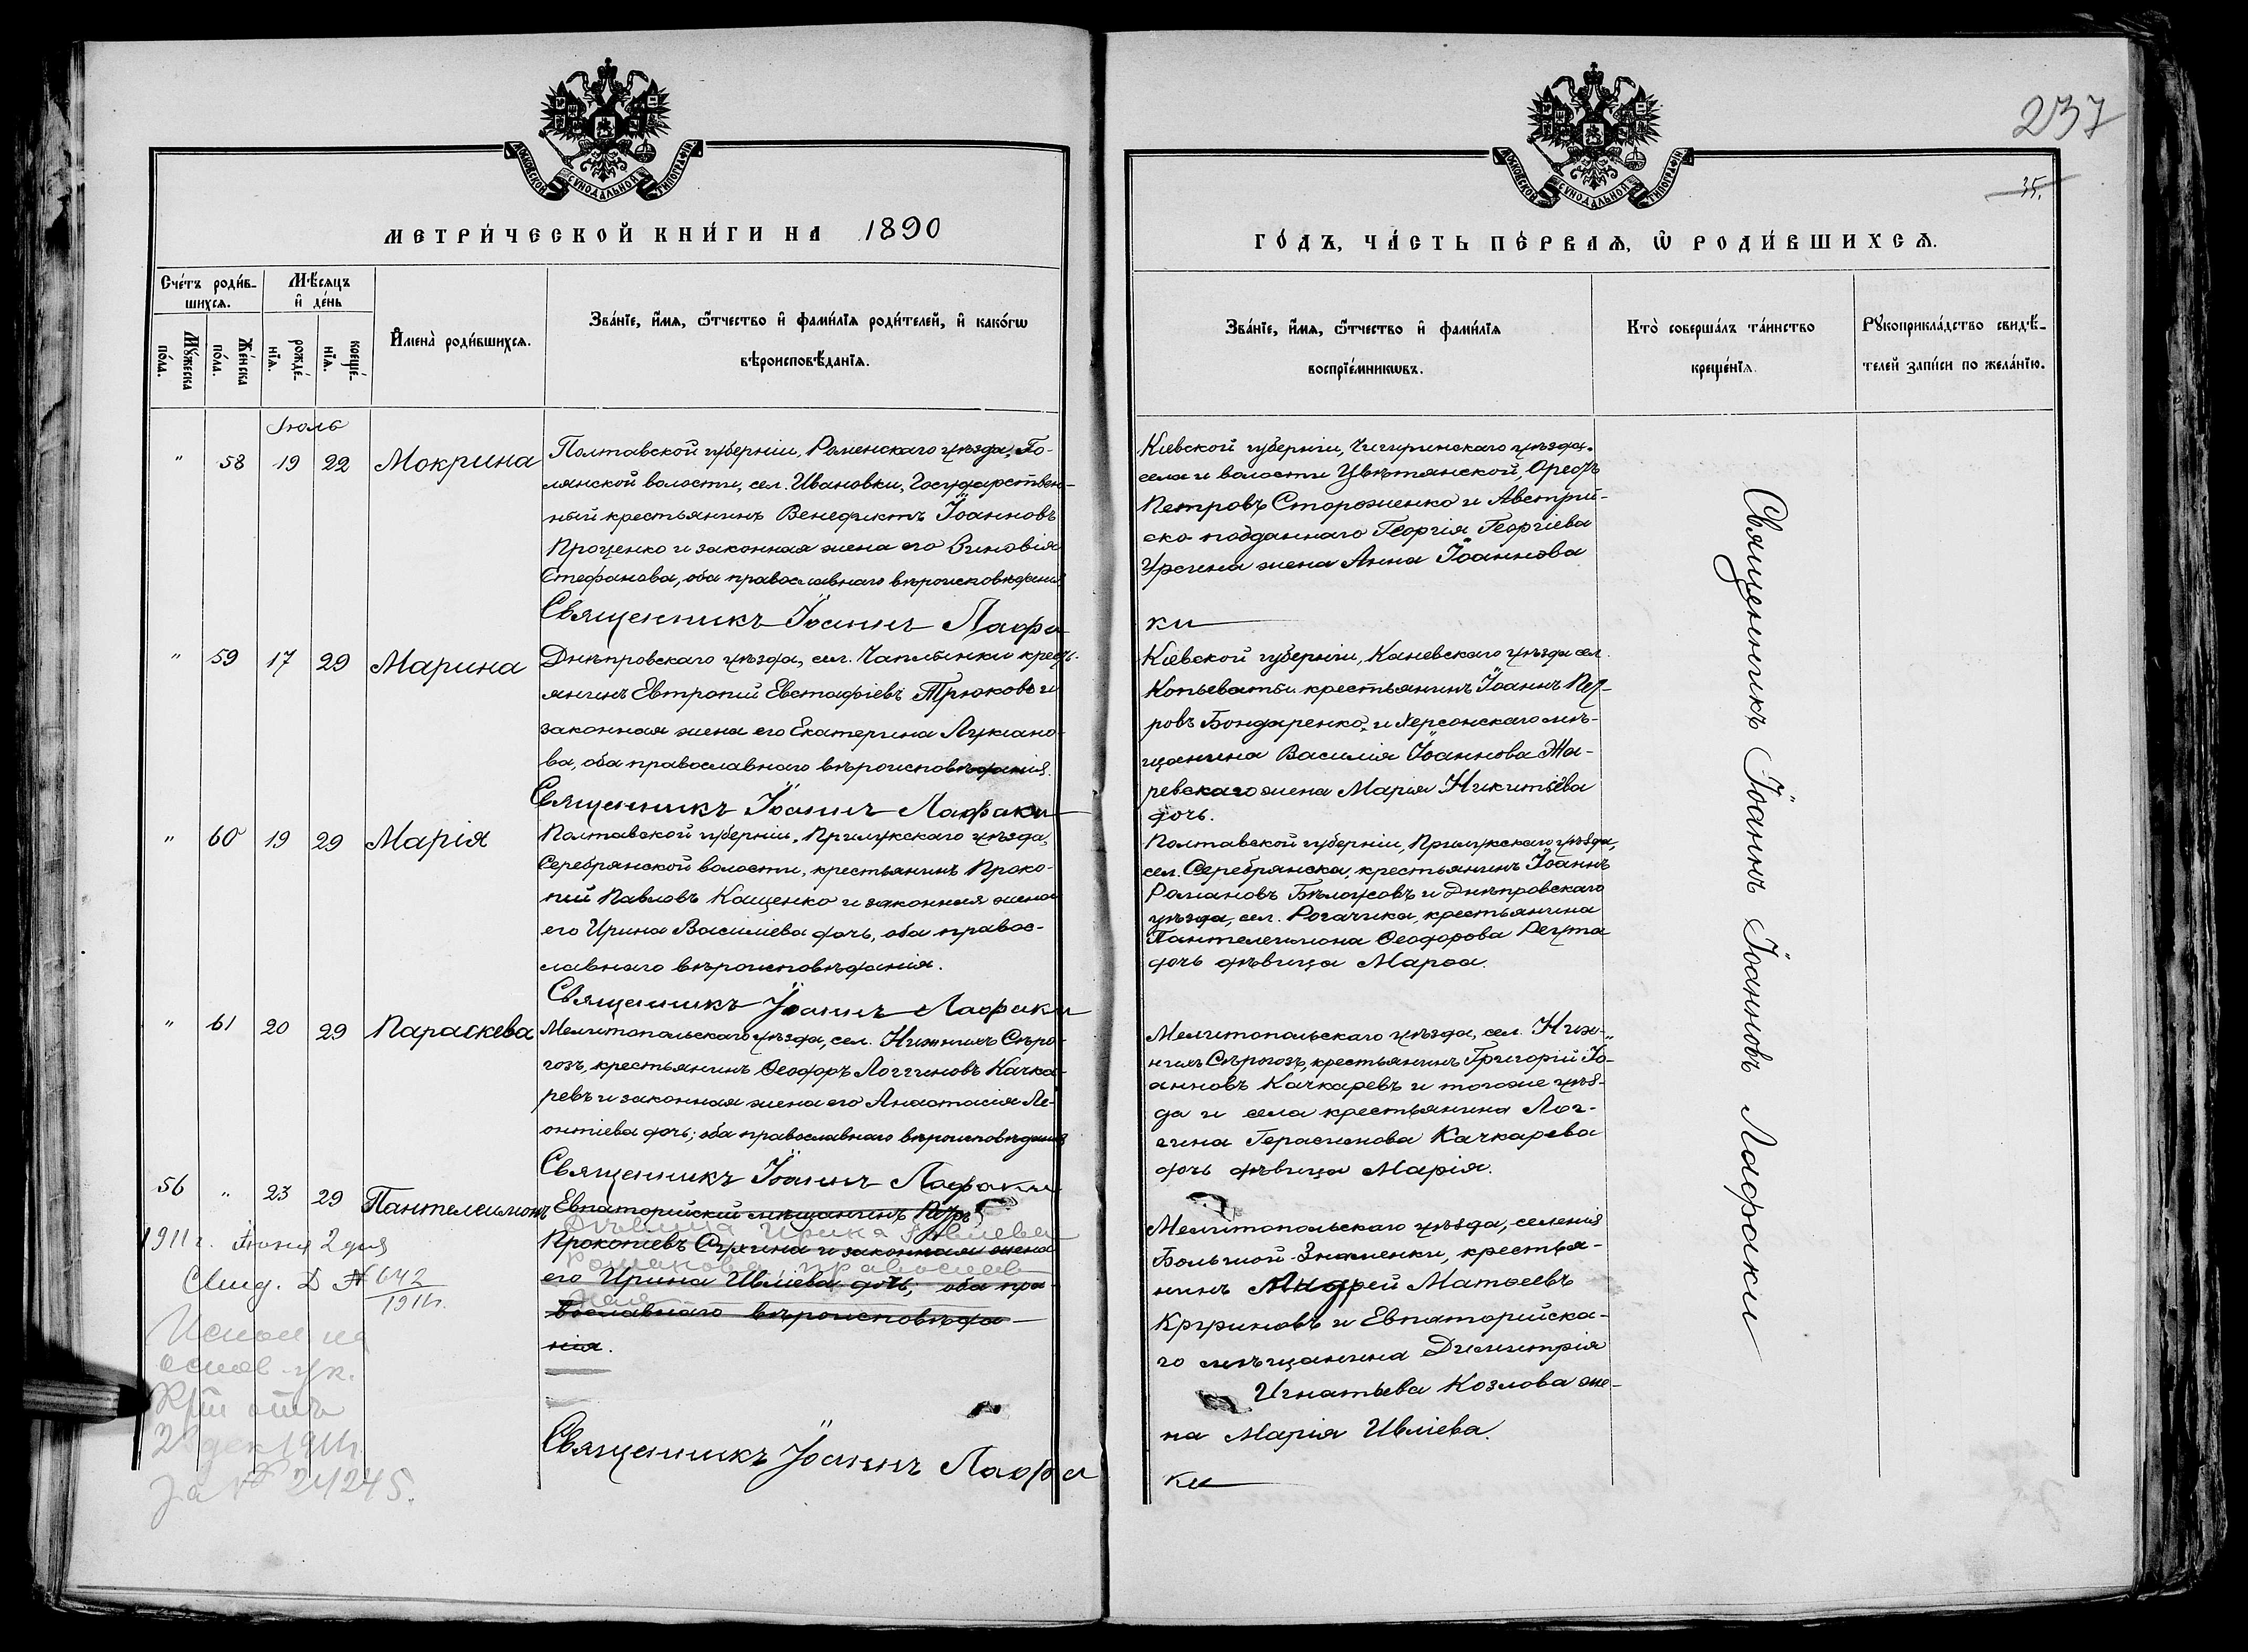 237
35.
МОСКОВСКОЙ СѴНОДАЛЬНОЙ ТИПОГРАФІИ
МОСКОВСКОЙ СѴНОДАЛЬНОЙ ТИПОГРАФІИ
МЕТРИ́ЧЕСКОЙ КНИ́ГИ НА 1890
ГО́ДЪ, ЧА́СТЬ ПЕ́РВАѦ, Ѡ҆ РОДИ́ВШИХСѦ.
Сче́тъ роди́в-
шихсѧ.
Мꙋ́жеска по́ла.
Же́нска по́ла.
Мѣ́сѧцъ
и҆ де́нь
рожде́-
нїѧ.
креще́-
нїѧ.
И҆мена̀ роди́вшихсѧ.
Зва́нїе, и҆́мѧ, ѻ҆́тчество и҆ фамилїѧ роди́телей, и҆ како́гѡ
вѣроисповѣ́данїѧ.
Зва́нїе, и҆́мѧ, ѻ҆́тчество и҆ фами́лїѧ
воспрїе́мникѡвъ.
Кто̀ соверша́лъ та́инство
креще́нїѧ.
Рꙋкоприкла́дство свидѣ́-
телей за́писи по жела́нїю.
Іюль
" 58 19 22 Мокрина
Полтавской губерніи, Роменскаго уѣзда, Го-
лянской волости, сел. Ивановки, Государствен-
ный крестьянинъ Венедиктъ Іоанновъ
Проценко и законная жена его Зиновія
Стефанова, оба православнаго вѣроисповѣданія
Священникъ Іоаннъ Лафа
Кіевской губерніи, Чигиринскаго уѣзда,
села и волости Цвѣтянской, Ореѳъ
Петровъ Стороженко и Австрій-
ско-подданнаго Георгія Георгіева
жена Анна Іоаннова
ки
" 59 17 29 Марина
Днѣпровскаго уѣзда, сел. Чаплинки кресть-
янинъ Евтропий Евстафіевъ Трюковъ и
законная жена его Екатерина Лукіано-
ва, оба православнаго вѣроисповѣданія.
Священникъ Іоаннъ Лафаки
Кіевской губерніи, Каневскаго уѣзда сел.
Копьеваты крестьянинъ Іоаннъ Пет-
ровъ Бондаренко и Херсонскаго мѣ-
щанина Василія Іоаннова Жа-
ревскаго жена Марія Никитіева
дочь.
" 60 19 29 Марія
Полтавской губерніи, Прилукскаго уѣзда,
Серебрянской волости, крестьянинъ Проко-
пій Павловъ Кащенко и законная жена
его Ирина Василіева дочь, оба правос-
лавнаго вѣроисповѣданія.
Священникъ Іоаннъ Лафаки
Полтавской губерніи, Прилукскаго уѣзда,
сел. Серебрянска, крестьянинъ Іоаннъ
Романовъ Бѣлоусовъ и Днѣпровскаго
уѣзда, сел. Рогачика, крестьянина
Пантелеимона Ѳеодорова Реута
дочь дѣвица Марѳа.
" 61 20 29 Параскева
Мелитопольскаго уѣзда, сел. Нижнихъ Сѣро-
гозъ, крестьянинъ Ѳеодоръ Логгиновъ Качка-
ревъ и законная жена его Анастасія Ле-
онтіева дочь; оба православнаго вѣроисповѣданія
Священникъ Іоаннъ Лафаки
Мелитопольскаго уѣзда, сел. Ниж-
нихъ Сѣрогозъ, крестьянинъ Григорій Іо-
анновъ Качкаревъ и тогоже уѣз-
да и села крестьянина Лог-
гина Герасимова Качкарева
дочь дѣвица Марія.
56 " 23 29 Пантелеимонъ
Евпаторийский мѣщанинъ Петръ
Дѣвица Ирина Ивліева
Прокопіевъ Сухина и законная жена
Романова, православ
его Ирина Ивліева дочь, оба пра-
ная
вославнаго вѣроисповѣда-
нія.
Священникъ Іоаннъ Лафа
1911 г. Іюня 2 дня
Свид. Д № 642
1911г.
осн ук.
отъ
дек 1911г.
за № 24245.
Мелитопольскаго уѣзда, селенія
Большой-Знаменки, крестья-
нинъ Андрей Матѳеевъ
Куриновъ и Евпаторійска-
го мѣщанина Димитрія
Игнатьева Козлова же-
на Марія Ивліева.
ки
Священникъ Іоаннъ Іоанновъ Лафаки